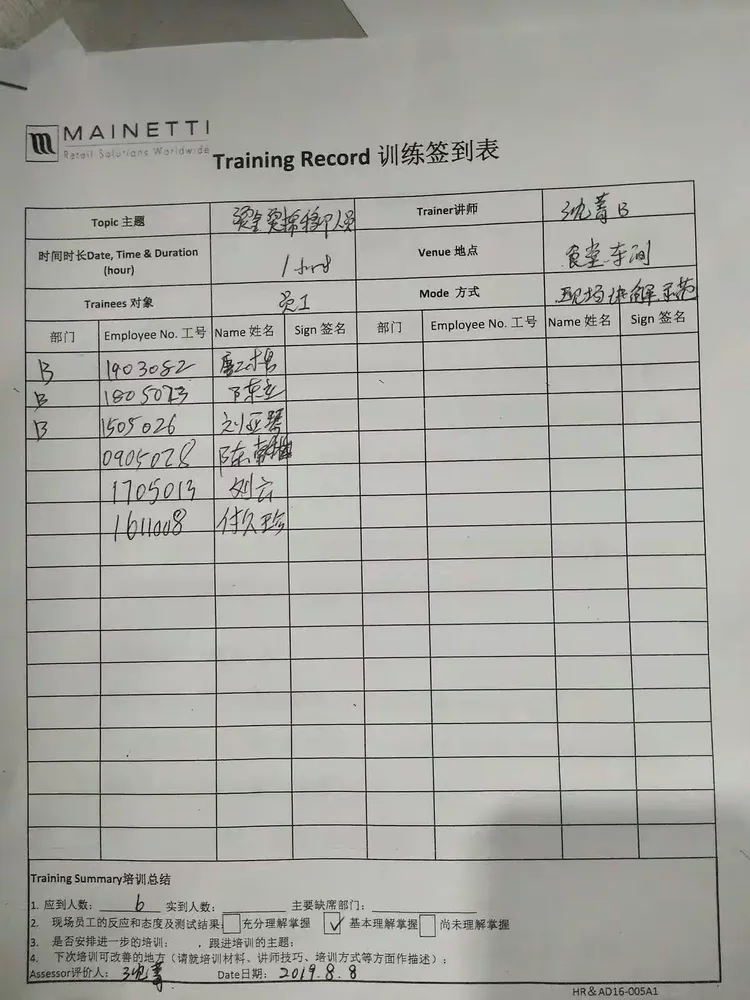 MAINETTI
Retail Solutions Worldwide
Training Record 训练签到表
Topic 主题 Trainer讲师 沈菁 B
时间时长Date, Time & Duration (hour) 1 Venue 地点 食堂 车间
Trainees 对象 员工 Mode 方式 现场讲解 示范
部门 Employee No. 工号 Name 姓名 Sign 签名 部门 Employee No. 工号 Name 姓名 Sign 签名
B 1903082
B 1805073 陈立
B 1505026 刘亚琴
0905028 陈
1705013 刘云
1611008 付久珍
Training Summary培训总结
1. 应到人数: 6 实到人数: 主要缺席部门:
2. 现场员工的反应和态度及测试结果: 充分理解掌握 ✓ 基本理解掌握 尚未理解掌握
3. 是否安排进一步的培训: , 跟进培训的主题:
4. 下次培训可改善的地方(请就培训材料、讲师技巧、培训方式等方面作描述):
Assessor评价人: 沈菁 Date日期: 2019.8.8
HR&AD16-005A1